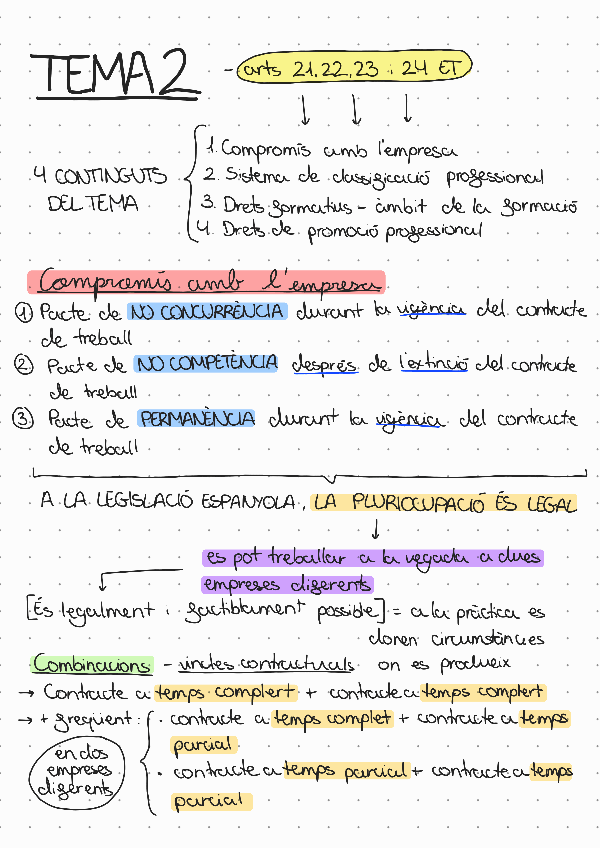 TEMA 2
- arts 21, 22, 23 i 24 ET
4 CONTINGUTS
DEL TEMA
1. Compromís amb l'empresa
2. Sistema de classificació professional
3. Drets formatius - àmbit de la formació
4. Drets de promoció professional
Compromís amb l'empresa
① Pacte de NO CONCURRÈNCIA durant la vigència del contracte
de treball
② Pacte de NO COMPETÈNCIA després de l'extinció del contracte
de treball
③ Pacte de PERMANÈNCIA durant la vigència del contracte
de treball
A LA LEGISLACIÓ ESPANYOLA, LA PLURIOCUPACIÓ ÉS LEGAL
es pot treballar a la vegada a dues
empreses diferents
[És legalment i factiblament possible] = a la pràctica es
donen circumstàncies
on es produeix
Combinacions - vincles contractuals
→ Contracte a temps complert + contracte a temps complert
→ + freqüent:
· contracte a temps complet + contracte a temps
parcial
· contracte a temps parcial + contracte a temps
parcial
en dos
empreses
diferents